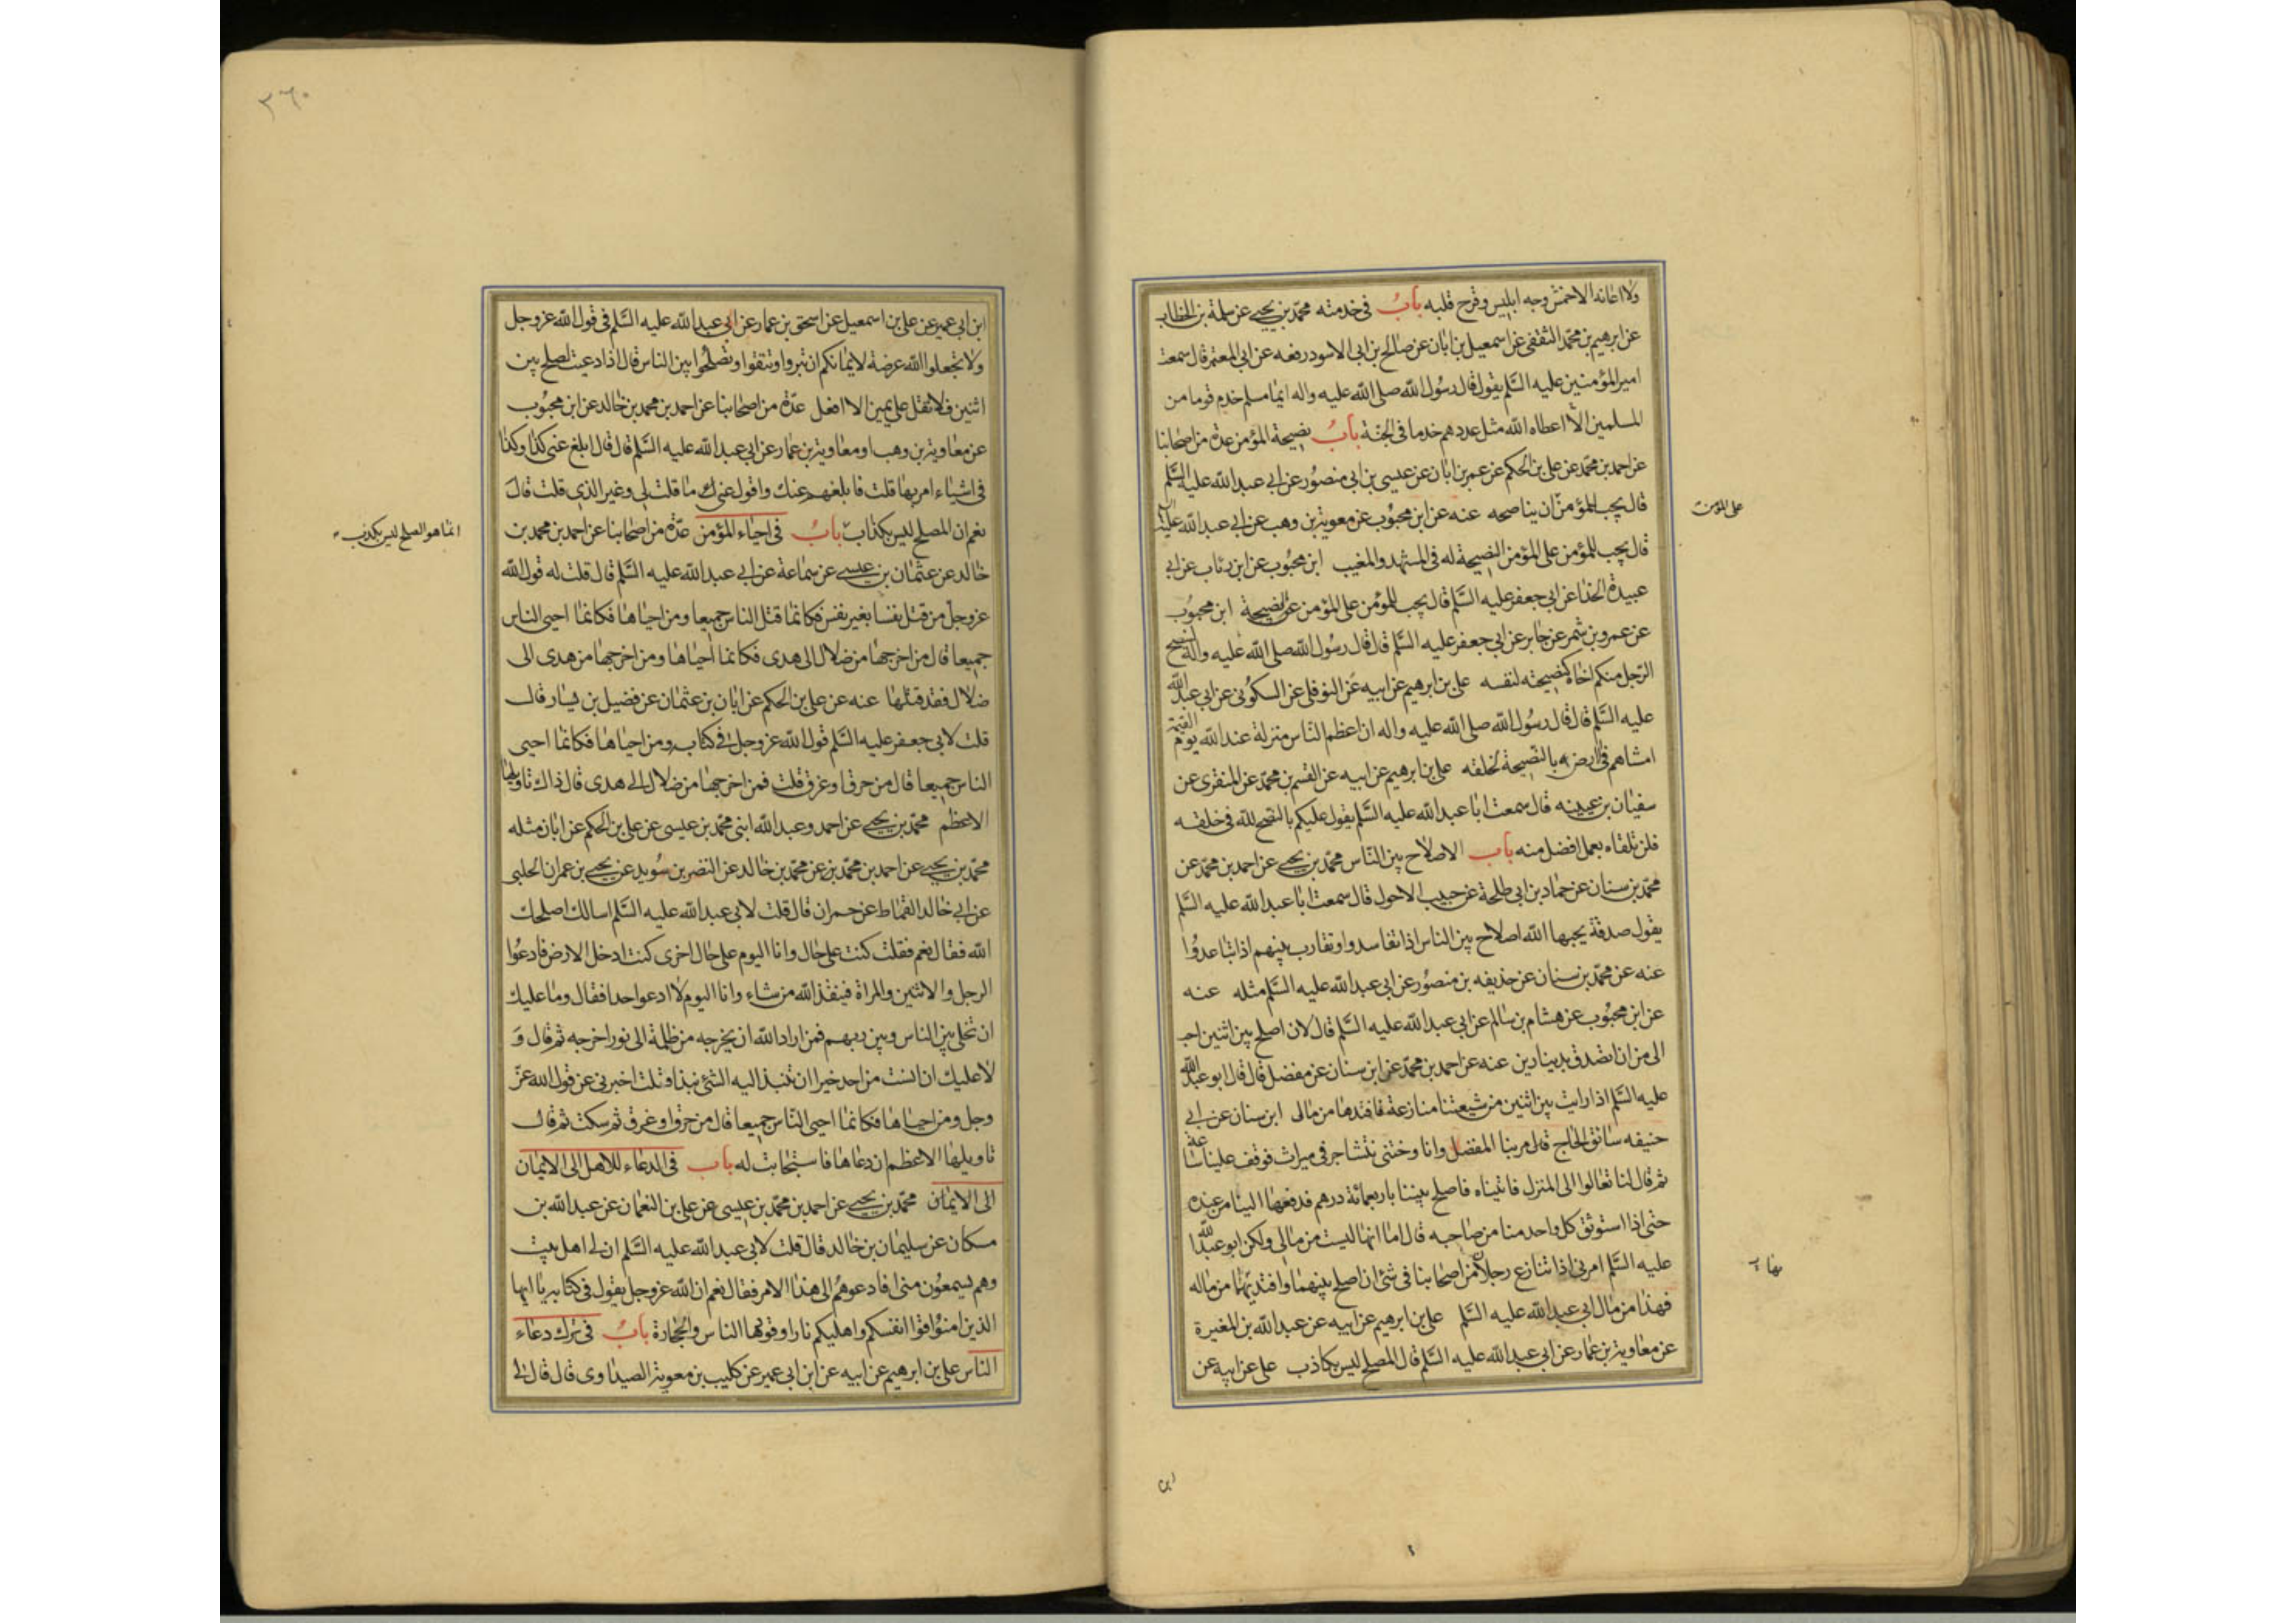 ولا اعانه الا خمش وجه ابليس وقرح قلبه باب في خدمته محمد بن يحيى عن سلمة بن الخطاب
عن ابرهيم بن محمد الثقفي عن اسمعيل بن ابان عن صالح بن ابي الاسود رفعه عن ابي المعتمر قال سمعت
امير المؤمنين عليه السلم يقول قال رسول الله صلى الله عليه واله ايما مسلم خدم قوما من
المسلمين الا اعطاه الله مثل عددهم خدما في الجنة باب نصيحة المؤمن عدة من اصحابنا
عن احمد بن محمد عن علي بن الحكم عن عمر بن ابان عن عيسى بن ابي منصور عن ابي عبد الله عليه السلم
قال يجب للمؤمن ان يناصحه عنه عن ابن محبوب عن معوية بن وهب عن ابي عبد الله عليه
على المؤمن
قال يجب للمؤمن على المؤمن النصيحة له في المشهد والمغيب ابن محبوب عن ابن رئاب عن ابي
عبيدة الحذا عن ابي جعفر عليه السلم قال يجب للمؤمن على المؤمن النصيحة ابن محبوب
عن عمرو بن شمر عن جابر عن ابي جعفر عليه السلم قال قال رسول الله صلى الله عليه واله لينصح
الرجل منكم اخاه كنصيحته لنفسه علي بن ابرهيم عن ابيه عن النوفلي عن السكوني عن ابي عبد الله
عليه السلم قال قال رسول الله صلى الله عليه واله ان اعظم الناس منزلة عند الله يوم القيمة
امشاهم في ارضه بالنصيحة لخلقه علي بن ابرهيم عن ابيه عن القسم بن محمد عن المنقري عن
سفيان بن عيينه قال سمعت ابا عبد الله عليه السلم يقول عليكم بالنصح لله في خلقه
فلن تلقاه بعمل افضل منه باب الاصلاح بين الناس محمد بن يحيى عن احمد بن محمد عن
محمد بن سنان عن حماد بن ابي طلحة عن حبيب الاحول قال سمعت ابا عبد الله عليه السلم
يقول صدقة يحبها الله اصلاح بين الناس اذا تفاسدوا وتقارب بينهم اذا تباعدوا
عنه عن محمد بن سنان عن حذيفه بن منصور عن ابي عبد الله عليه السلم مثله عنه
عن ابن محبوب عن هشام بن سالم عن ابي عبد الله عليه السلم قال لان اصلح بين اثنين احب
الى من ان اتصدق بدينارين عنه عن احمد بن محمد عن ابن سنان عن مفضل قال قال ابو عبد الله
عليه السلم اذا رايت بين اثنين من شيعتنا منازعة فافتدها من مالى ابن سنان عن ابي
حنيفه سائق الحاج قال مر بنا المفضل وانا وختني نتشاجر في ميراث فوقف علينا ساعة
ثم قال لنا تعالوا الى المنزل فاتيناه فاصلح بيننا باربعمائة درهم فدفعها الينا من عنده
حتى اذا استوثق كل واحد منا من صاحبه قال اما انها ليست من مالي ولكن ابو عبد الله
عليه السلم امرني اذا تنازع رجلان من اصحابنا في شئ ان اصلح بينهما وافتديهما من ماله
فهذا من مال ابي عبد الله عليه السلم علي بن ابرهيم عن ابيه عن عبد الله بن المغيرة
عن معاوية بن عمار عن ابي عبد الله عليه السلم قال المصلح ليس بكاذب علي عن ابيه عن
ابن
٣٦٠
ابن ابي عمير عن علي بن اسمعيل عن اسحق بن عمار عن ابي عبد الله عليه السلم في قول الله عز وجل
ولا تجعلوا الله عرضة لايمانكم ان تبروا وتتقوا وتصلحوا بين الناس قال اذا دعيت لصلح بين
اثنين فلا تقل علي يمين الا افعل عدة من اصحابنا عن احمد بن محمد بن خالد عن ابن محبوب
عن معاوية بن وهب او معاوية بن عمار عن ابي عبد الله عليه السلم قال قال ابلغ عني كذا وكذا
في اشياء امر بها قلت فابلغهم عنك واقول عني ما قلت لي وغير الذي قلت قال
نعم ان المصلح ليس بكذاب باب في احياء المؤمن عدة من اصحابنا عن احمد بن محمد بن
انما هو الصلح ليس بكذب
خالد عن عثمان بن عيسى عن سماعة عن ابي عبد الله عليه السلم قال قلت له قول الله
عز وجل من قتل نفسا بغير نفس فكانما قتل الناس جميعا ومن احياها فكانما احيى الناس
جميعا قال من اخرجها من ضلال الى هدى فكانما احياها ومن اخرجها من هدى الى
ضلال فقد قتلها عنه عن علي بن الحكم عن ابان بن عثمان عن فضيل بن يسار قال
قلت لابي جعفر عليه السلم قول الله عز وجل في كتابه ومن احياها فكانما احيى
الناس جميعا قال من حرق او غرق قلت فمن اخرجها من ضلال الى هدى قال ذاك تاويلها
الاعظم محمد بن يحيى عن احمد وعبد الله ابنى محمد بن عيسى عن علي بن الحكم عن ابان مثله
محمد بن يحيى عن احمد بن محمد بن عن محمد بن خالد عن النضر بن سويد عن يحيى بن عمران الحلبى
عن ابي خالد القماط عن حمران قال قلت لابي عبد الله عليه السلم اسالك اصلحك
الله فقال نعم فقلت كنت على حال وانا اليوم على حال اخرى كنت ادخل الارض فادعوا
الرجل والاثنين والمراة فينقذ الله من شاء وانا اليوم لا ادعو احدا فقال وما عليك
ان تخلي بين الناس وبين ربهم فمن اراد الله ان يخرجه من ظلمة الى نور اخرجه ثم قال و
لا عليك ان انست من احد خيرا ان تنبذ اليه الشئ نبذا قلت اخبرني عن قول الله عز
وجل ومن احياها فكانما احيى الناس جميعا قال من حرق او غرق ثم سكت ثم قال
تاويلها الاعظم ان دعاها فاستجابت له باب في الدعاء للاهل الى الايمان
الى الايمان محمد بن يحيى عن احمد بن محمد بن عيسى عن علي بن النعمان عن عبد الله بن
مسكان عن سليمان بن خالد قال قلت لابي عبد الله عليه السلم ان لي اهل بيت
وهم يسمعون منى افادعوهم الى هذا الامر فقال نعم ان الله عز وجل يقول في كتابه يا ايها
الذين امنوا قوا انفسكم واهليكم نارا وقودها الناس والحجارة باب في ترك دعاء
الناس علي بن ابرهيم عن ابيه عن ابن ابي عمير عن كليب بن معوية الصيداوى قال قال لي